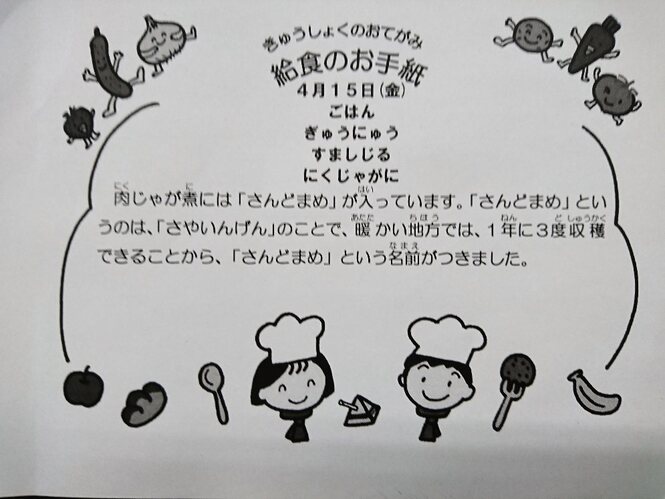 きゅうしょくのおてがみ
給食のお手紙
4月15日(金)
ごはん
ぎゅうにゅう
すましじる
にくじゃがに
にく に はい
肉じゃが煮には「さんどまめ」が入っています。「さんどまめ」とい
あたた ちほう ねん ど しゅうかく
うのは、「さやいんげん」のことで、暖かい地方では、1年に3度収穫
なまえ
できることから、「さんどまめ」という名前がつきました。